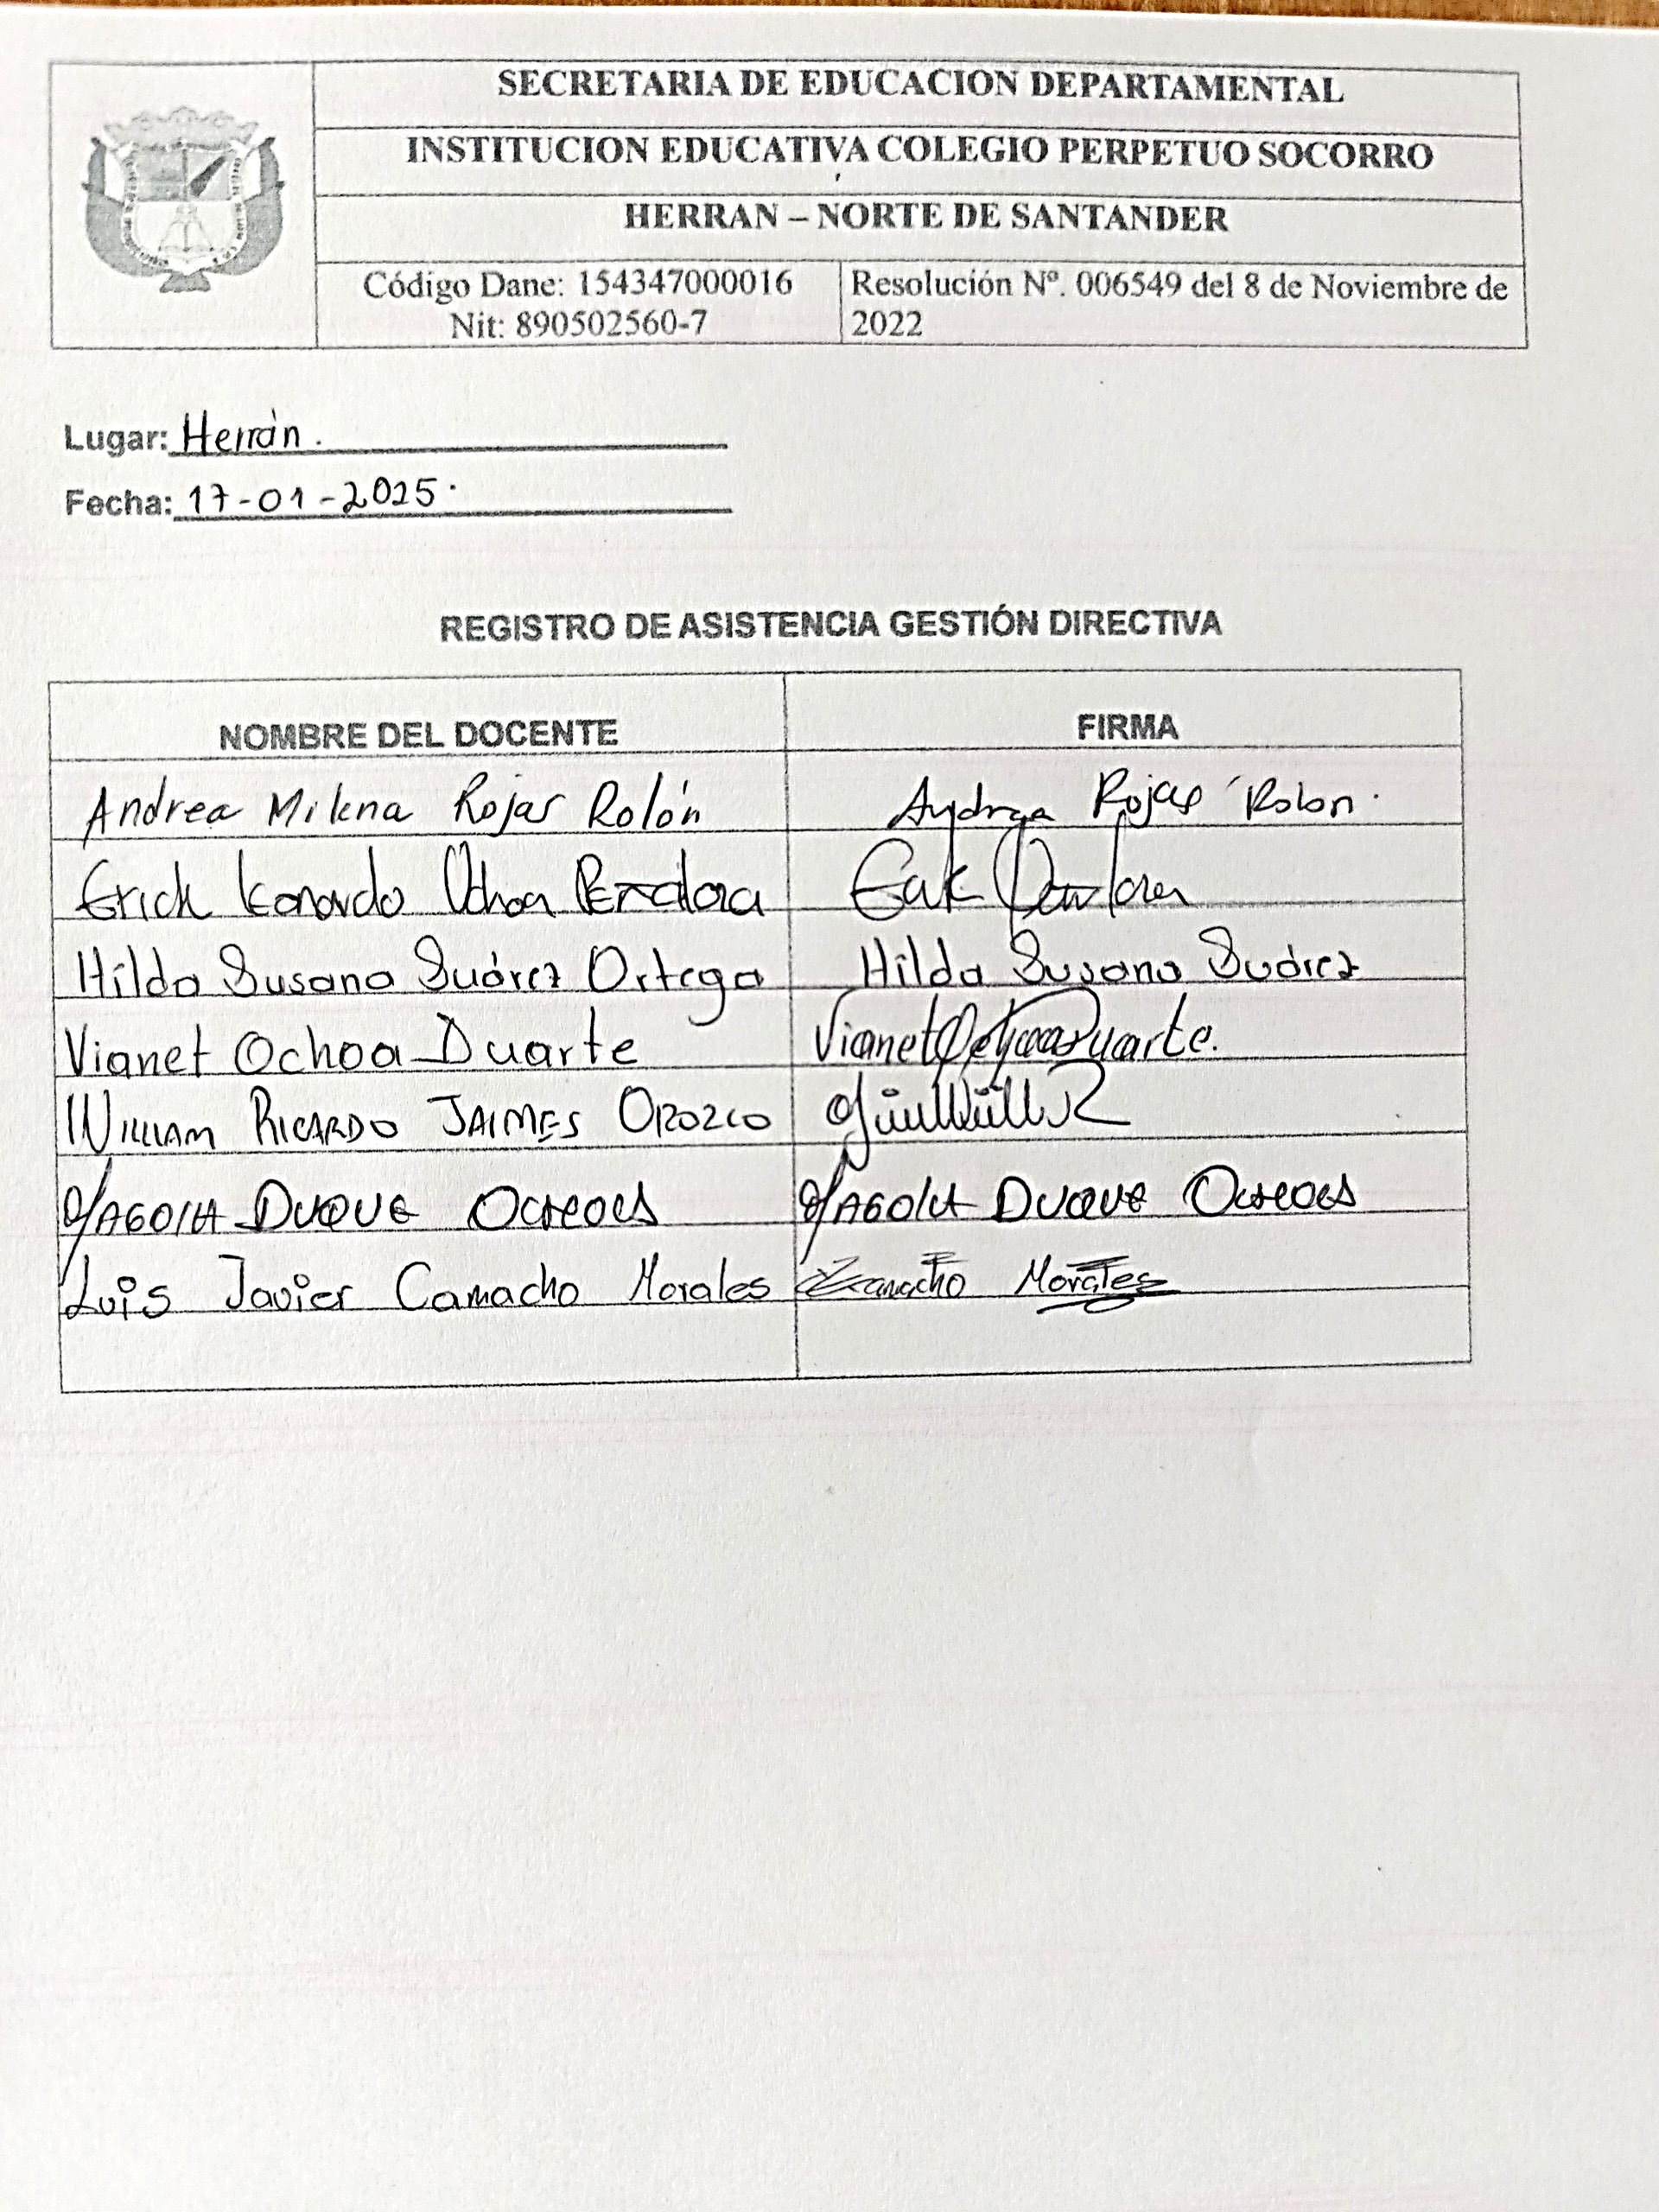 SECRETARIA DE EDUCACION DEPARTAMENTAL
INSTITUCION EDUCATIVA COLEGIO PERPETUO SOCORRO
HERRAN – NORTE DE SANTANDER
Código Dane: 154347000016
Nit: 890502560-7
Resolución Nº. 006549 del 8 de Noviembre de
2022
Lugar: Herrán.
Fecha: 17-01-2025.
REGISTRO DE ASISTENCIA GESTIÓN DIRECTIVA
NOMBRE DEL DOCENTE FIRMA
Andrea Milena Rojas Rolón Andrea Rojas Rolon.
Erick Leonardo Ochoa
Hilda Susana Suárez Ortega Hilda Susana Suárez
Vianet Ochoa Duarte Vianet Duarte.
WILLIAM RICARDO JAIMES OROZCO
DUQUE DUQUE
Luis Javier Camacho Morales Camacho Morales